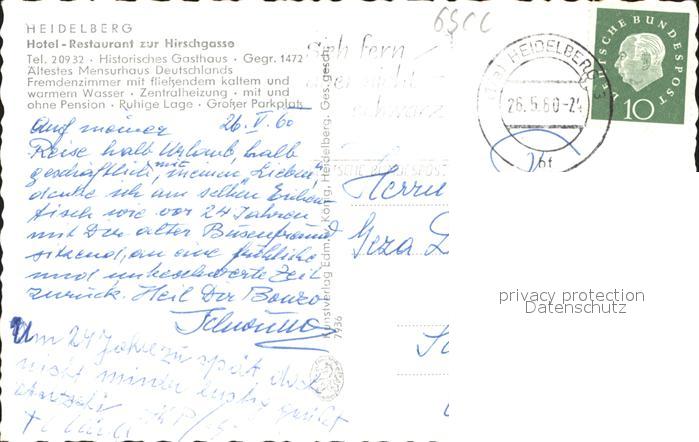 HEIDELBERG
Hotel-Restaurant zur Hirschgasse
Tel. 20932 · Historisches Gasthaus · Gegr. 1472
Ältestes Mensurhaus Deutschlands
Fremdenzimmer mit fließendem kaltem und
warmem Wasser · Zentralheizung · mit und
ohne Pension · Ruhige Lage · Großer Parkplatz
65CC
Sich fern
schwarz
HEIDELBERG
26.5.60-24
bt
DEUTSCHE BUNDESPOST
10
Auf meiner 26.V.60
Reise halb Urlaub, halb
geschäftlich, mit meinen Lieben,
denke ich am selben
tisch wie vor 24 Jahren
mit Dir alter Busenfreund
sitzend, an eine fröhliche
und unbeschwerte Zeit
zurück. Heil Dir Bonzo
Um 24 Jahre zu spät doch
nicht minder lustig
Kunstverlag Edm. v. König, Heidelberg. Ges. gesch.
7936
Herrn
Geza
privacy protection
Datenschutz